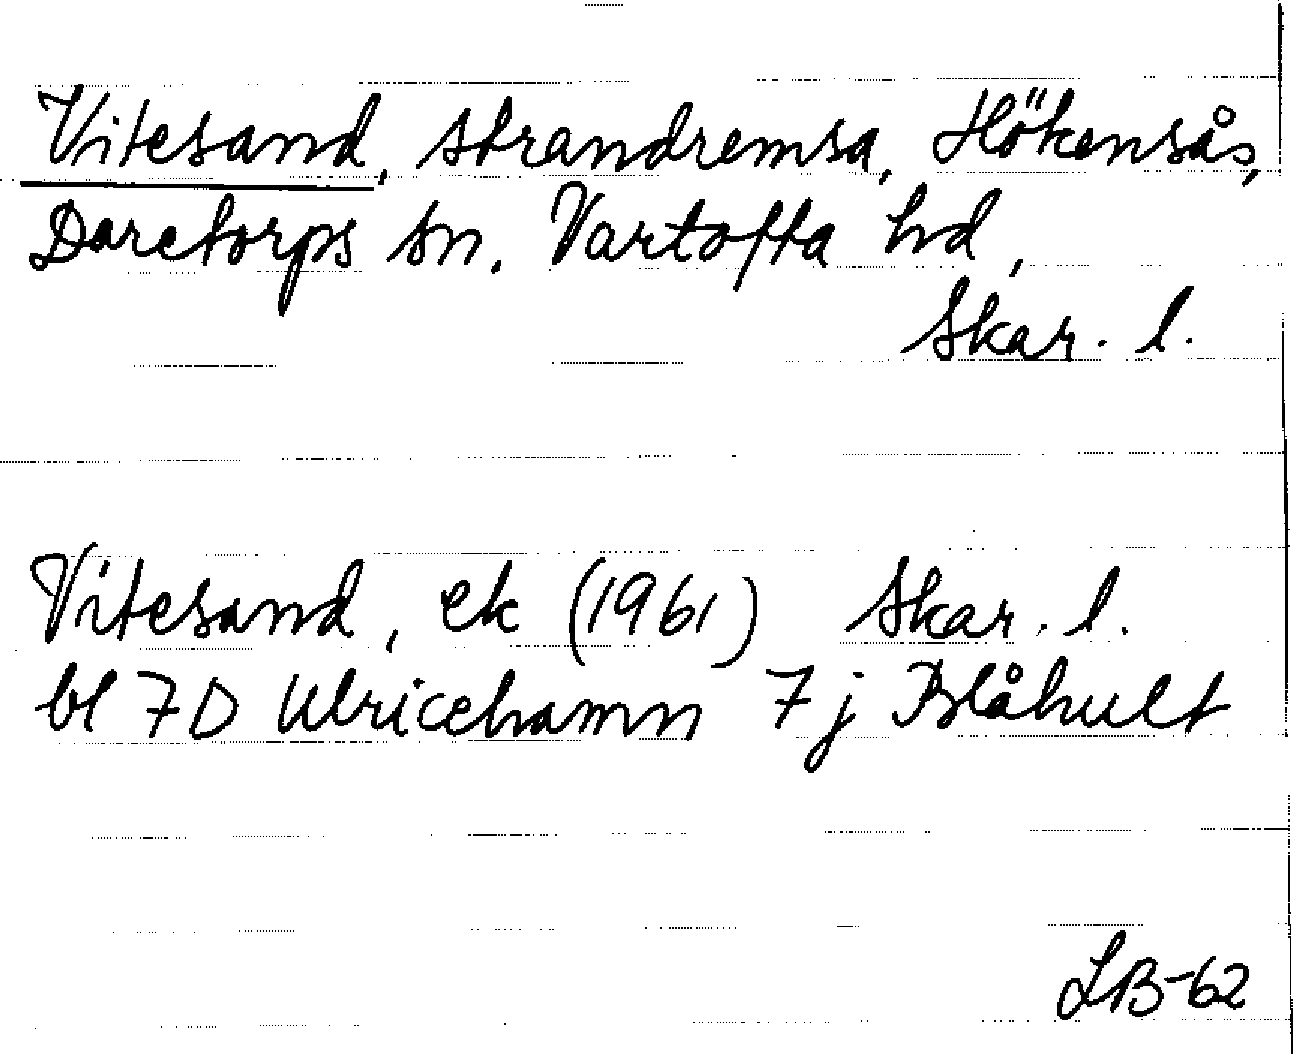 Vitesand, strandremsa, Hökensås,
Daretorps sn. Vartofta hd,
Skar. l.
Vitesand, ek (1961) Skar. l.
bl 7D Ulricehamn 7j Blåhult
LB-62